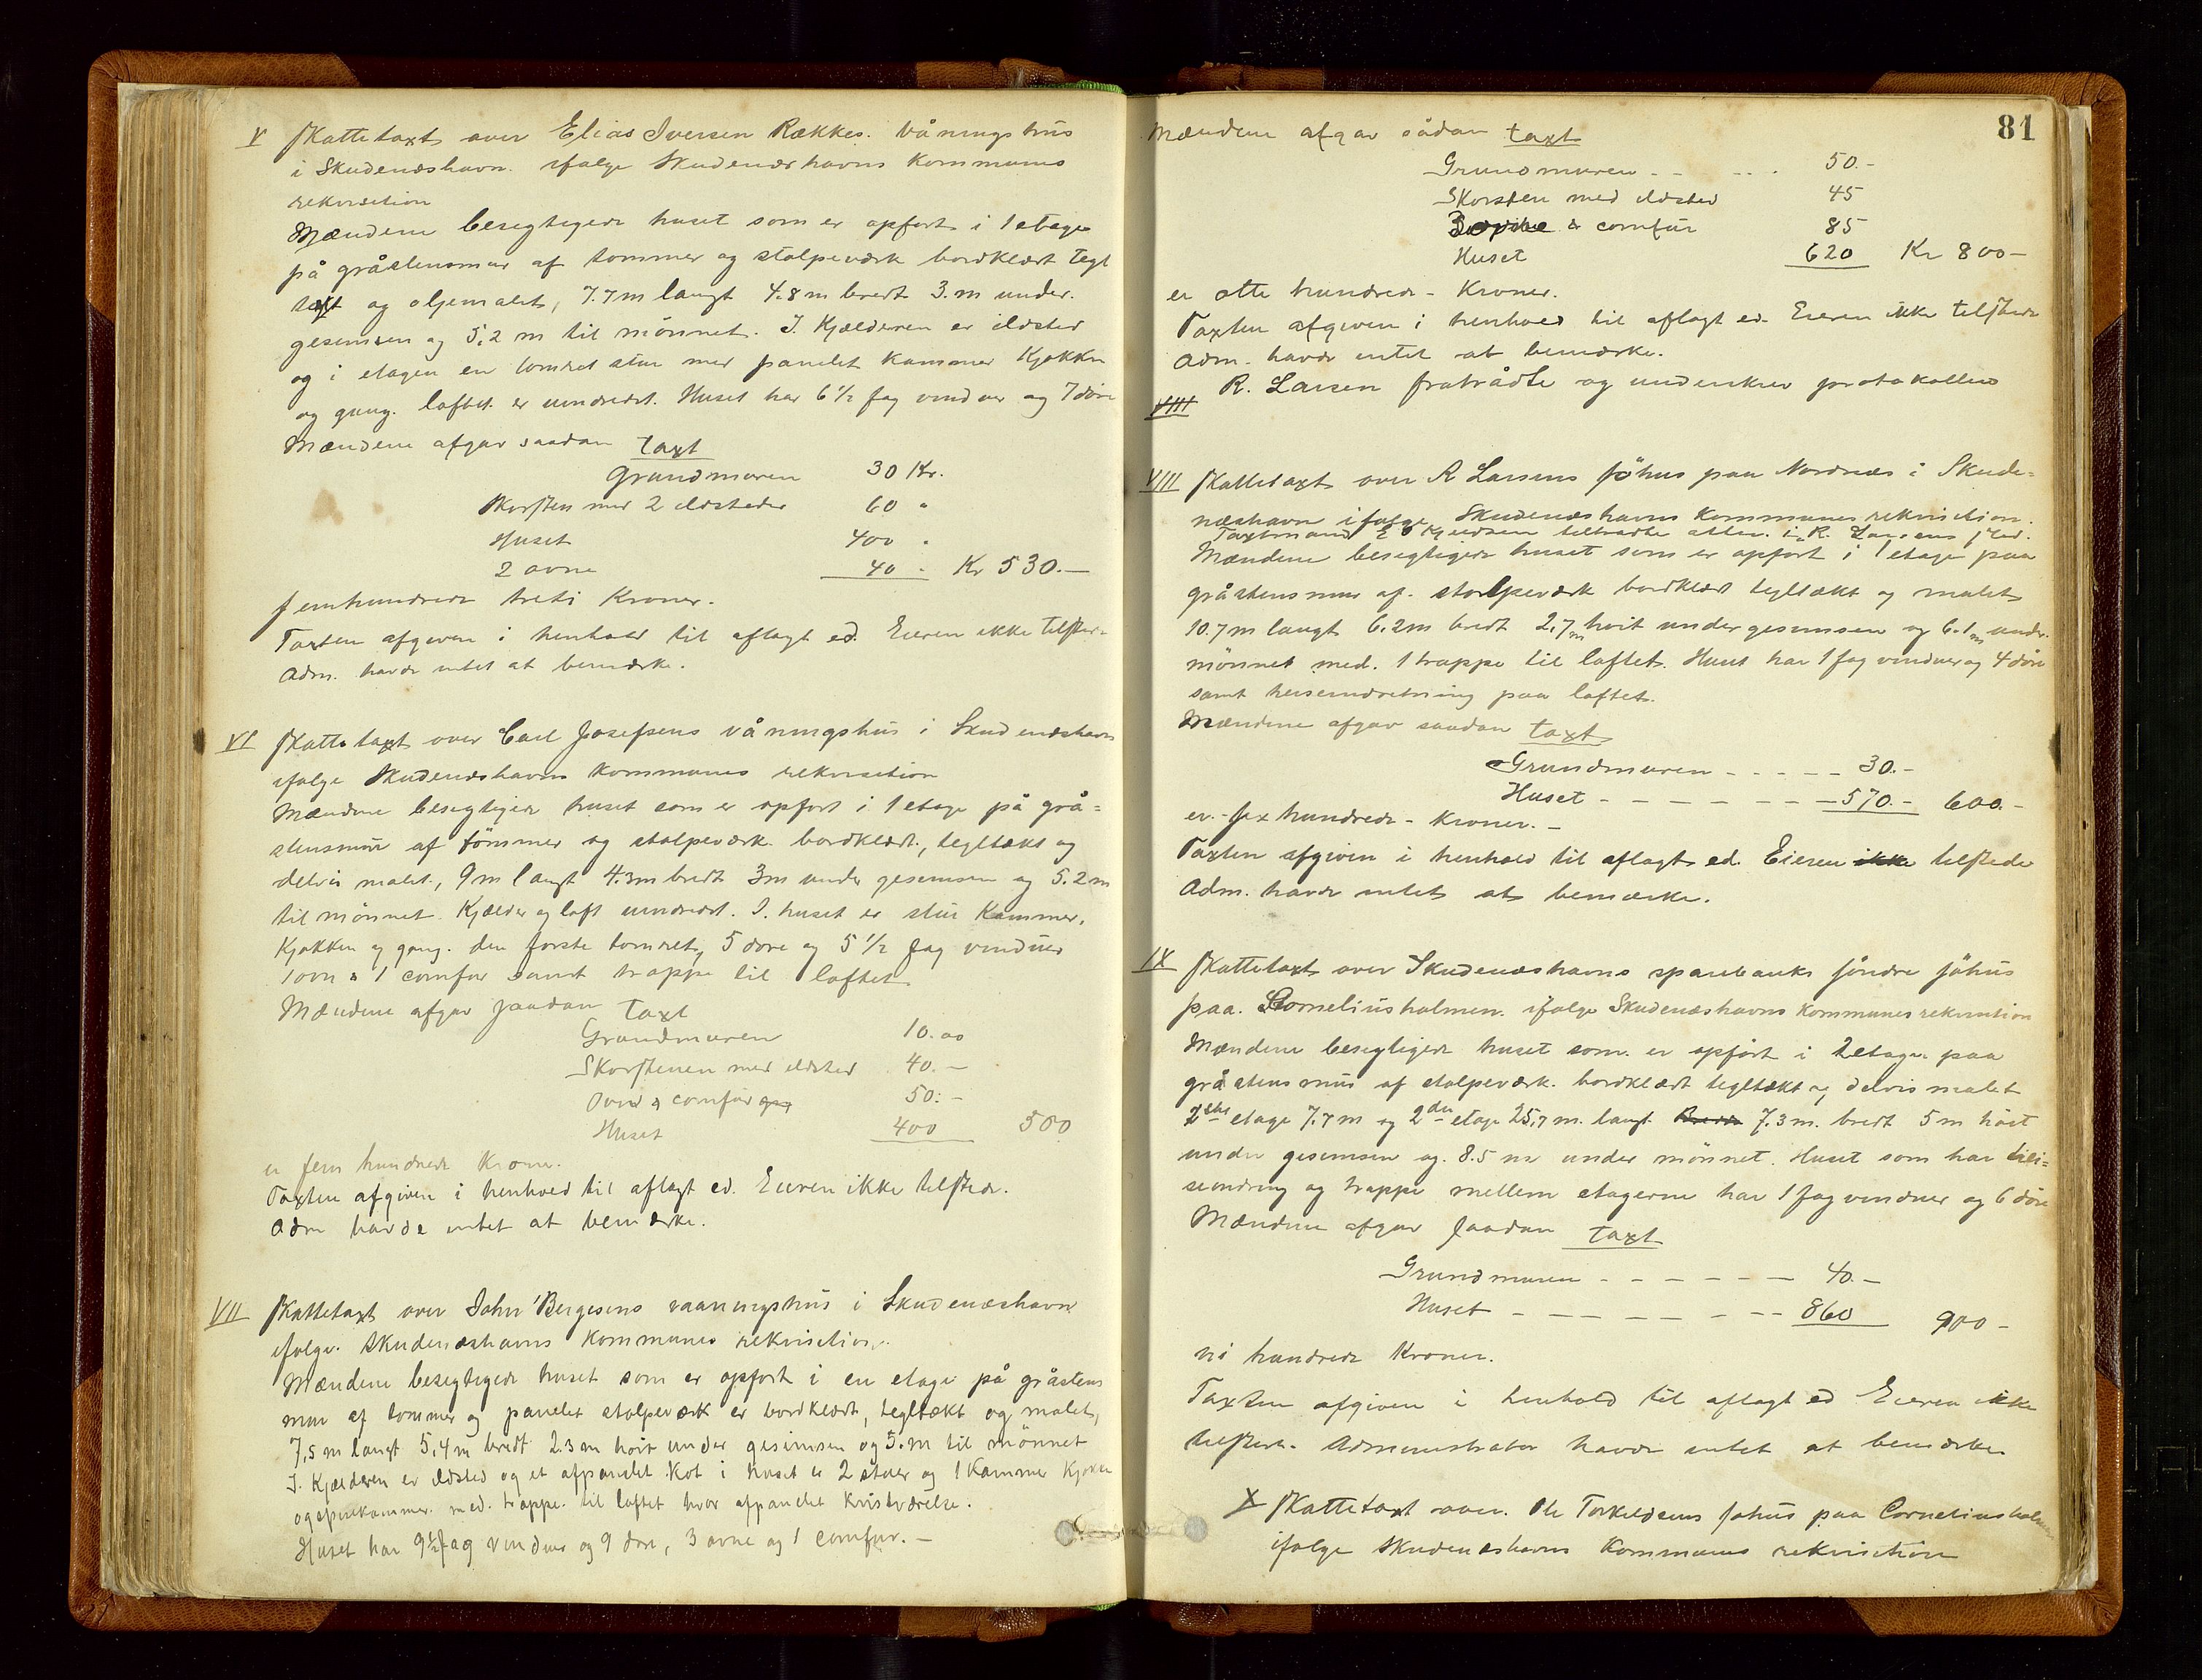 V Skattetaxt over Elias Iversen Rækkes. Våningshus
i Skudenæshavn. ifølge Skudenæshavns Kommunes
rekvisition
Mændene besigtigede huset som er opført i 1 etage
på gråstensmur af tømmer og stolpeværk bordklædt tegl
takt og oljemalet, 7.7 m langt 4.8 m bredt 3. m under.
gesimsen og 5.2 m til mönnet. I Kjælderen er ildsted
og i etagen en tømret stue med panelet kammer Kjøkken
og gang. loftet er uindredet. Huset har 6 1/2 fag vinduer og 7 döre
Mændene afgav saadan taxt
Grundmuren 30 Kr.
Skorsten med 2 ildsteder 60 "
Huset 400 "
2 ovne 40 " Kr 530.—
femhundrede treti Kroner.
Taxten afgiven i henhold til aflagt ed. Eieren ikke tilstede.
Adm. havde intet at bemærke.
VI Skattetaxt over Carl Josefsens våningshus i Skudenæshavn
ifølge Skudenæshavns kommunes rekvisition
Mændene besigtigede huset som er opført i 1 etage på grå=
stensmur af tömmer og stolpeværk. bordklædt, tegltækt og
delvis malet, 9 m langt 4.3 m bredt 3 m under gesimsen og 5.2 m
til mönnet. Kjælder og loft uindredet. I huset er stue Kammer,
Kjøkken og gang. den første tømret, 5 døre og 5 1/2 fag vinduer
1 ovn & 1 comfur samt trappe til loftet
Mændene afgav saadan taxt
Grundmuren 10.00
Skorstenen med ildsted 40.—
Ovn & comfur 50.—
Huset 400 500
er fem hundrede Kroner.
Taxten afgiven i henhold til aflagt ed. Eieren ikke tilstede.
Adm havde intet at bemærke.
VII Skattetaxt over John Bergesens vaaningshus i Skudenæshavn
ifølge. Skudenæshavns Kommunes rekvisition.
Mændene besigtigede huset som er opført i en etage på gråstens
mur af tømmer og panelet stolpeværk er bordklædt, tegltækt og malet,
7,5 m langt 5,4 m bredt 2.3 m höit under gesimsen og 5. m til mönnet
I. Kjælderen er ildsted og et afpanelet Kot i huset er 2 stuer og 1 Kammer Kjøkken
og spisekammer. med. trappe. til loftet hvor afpanelet kvistværelse.
Huset har 9 1/2 fag vinduer og 9 døre, 3 ovne og 1 comfur. —
81
Mændene afgav sådan taxt
Grundmuren - - - - - 50.-
Skorsten med ildsted 45
3 ovne & comfur 85
Huset 620 Kr 800—
er otte hundrede - Kroner.
Taxten afgiven i henhold til aflagt ed. Eieren ikke tilstede
Adm. havde intet at bemærke.
R. Larsen fratrådte og underskrev protokollen
VIII
VIII Skattetaxt over R Larsens söhus paa Nordnæs i Skude=
næshavn ifølge Skudenæshavns Kommunes rekvisition.
Taxtmand tiltraadte atter. i R. Larsens sted.
Mændene besigtigede huset som er opført i 1 etage paa
gråstensmur af. stolpeværk bordklædt tegltækt og malet
10.7 m langt 6.2 m bredt 2,7 m höit under gesimsen og 6.1 m under.
mönnet med. 1 trappe til loftet. Huset har 1 fag vinduer og 4 döre
samt heiseindretning paa loftet.
Mændene afgav saadan taxt
Grundmuren - - - - - 30.-
Huset - - - - - - - - 570.- 600.-
er.- sex hundrede - Kroner. -
Taxten afgiven i henhold til aflagt ed. Eieren ikke tilstede
Adm. havde intet at bemærke.
IX Skattetaxt over Skudenæshavns sparebanks söndre söhus
paa. Corneliusholmen. ifølge Skudenæshavns Kommunes rekvisition
Mændene besigtigede huset som. er opfört i 2 etager paa
gråstensmur af stolpeværk. bordklædt tegltækt og delvis malet
1ste etage 7.7 m og 2den etage 25,7 m. langt Bredde 7.3 m. bredt 5 m höit
under gesimsen og. 8.5 m under mönnet. Huset som har
og trappe mellem etagerne har 1 fag vinduer og 6 döre
Mændene afgav saadan taxt
Grundmuren - - - - - - - 40.—
Huset - - - - - - - - - 860 900 -
ni hundrede Kroner.
Taxten afgiven i henhold til aflagt ed Eieren ikke
tilstede. Administrator havde intet at bemærke
X Skattetaxt over. Ole Torkildsens søhus paa Corneliusholmen
ifølge Skudenæshavns Kommunes rekvisition